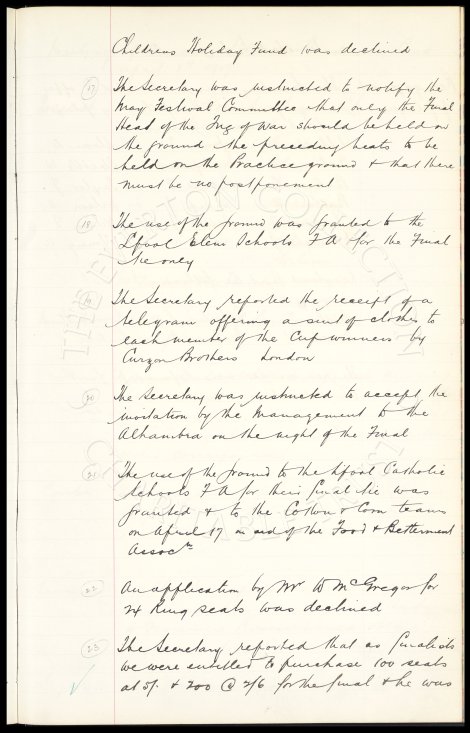 Childrens Holiday Fund was declined
17 The Secretary was instructed to notify the
May Festival Committee that only the Final
Heat of the Tug of War should be held on
the ground the preceding heats to be
held on the Practice ground & that there
must be no postponement
18 The use of the ground was granted to the
Lpool Elem Schools F A for the Final
tie only
19 The Secretary reported the receipt of a
telegram offering a suit of clothes to
each member of the Cup winners by
Curzon Brothers London
20 The Secretary was instructed to accept the
invitation by the Management to the
Alhambra on the night of the Final
21 The use of the ground to the Lpool Catholic
Schools F A for their final tie was
granted & to the Cotton & Corn teams
on April 17 in aid of the Food & Betterment
Assocn
22 An application by Mr W McGregor for
24 Ring seats was declined
23 The Secretary reported that as finalists
we were entitled to purchase 100 seats
at 5/- & 200 @ 2/6 for the final & he was